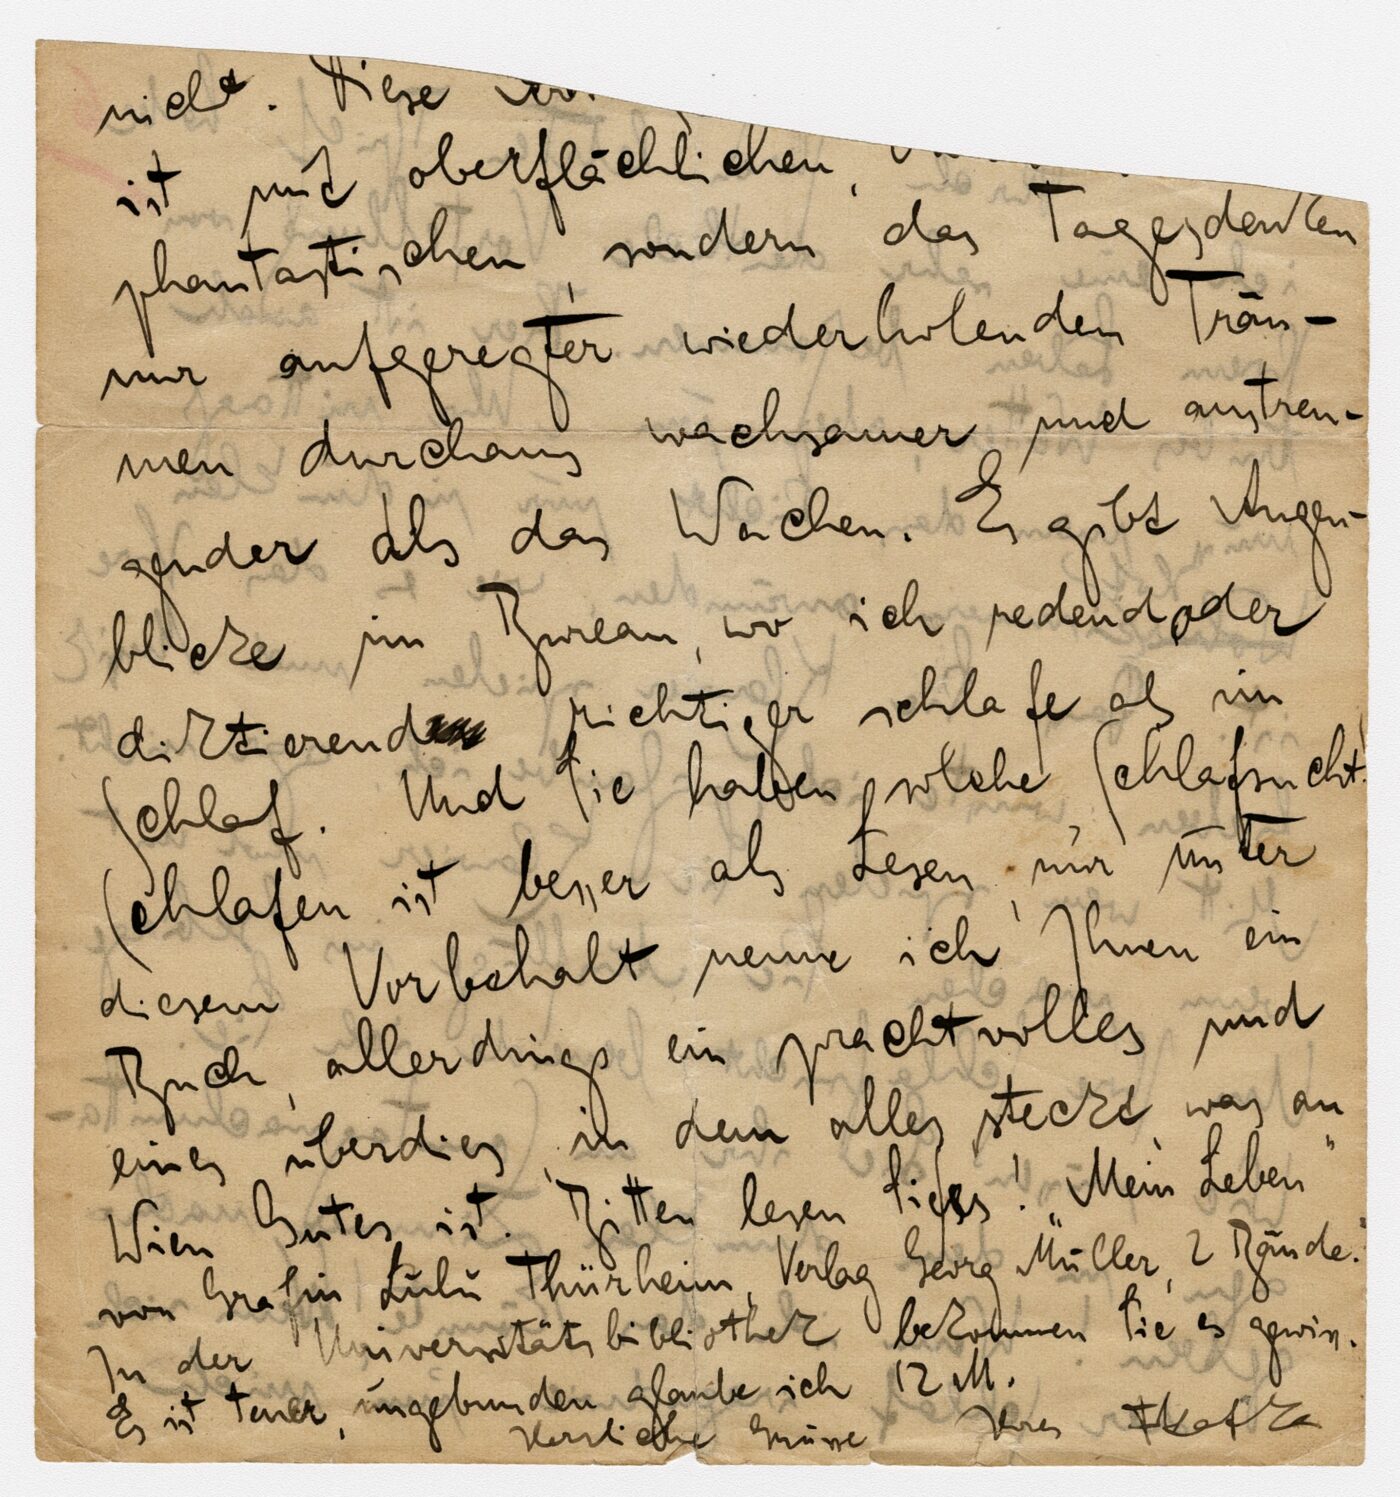 nicht. Diese
ist mit oberflächlichen,
phantastischen, sondern das Tagesdenken
nur aufgeregter wiederholenden Träu-
men durchaus wachsamer und anstren-
gender als das Wachen. Es gibt Augen-
blicke im Bureau, wo ich redend oder
diktierend richtiger schlafe als im
Schlaf. Und Sie haben solche Schlafsucht.
Schlafen ist besser als Lesen, nur unter
diesem Vorbehalt nenne ich Ihnen ein
Buch, allerdings ein prachtvolles und
eines überdies, in dem alles steckt, was an
Wien Gutes ist. Bitten lesen Sies! „Mein Leben"
von Gräfin Lulu Thürheim, Verlag Georg Müller, 2 Bände.
In der Universitätsbibliothek bekommen Sie es gewiss.
Es ist teuer, ungebunden glaube ich 12 M.
Herzliche Grüsse Ihres FKafka